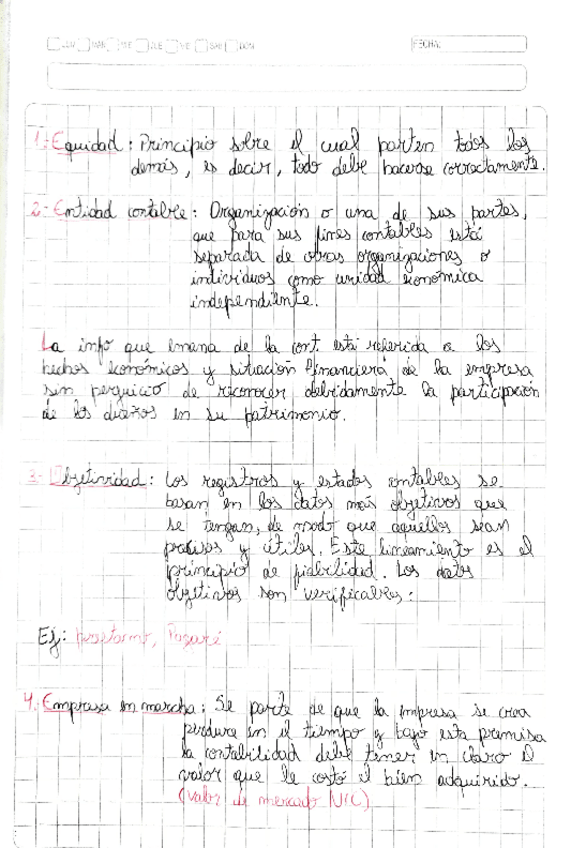 LU MAR MIE JUE VIE SAB DOM
FECHA:
1.- Equidad: Principio sobre el cual parten todos los
demás, es decir, todo debe hacerse correctamente.
2.- Entidad contable: Organización o una de sus partes,
que para sus fines contables está
separada de otras organizaciones o
individuos como unidad económica
independiente.
La info que emana de la cont. está referida a los
hechos económicos y situación financiera de la empresa
sin perjuicio de reconocer debidamente la participación
de los dueños en su patrimonio.
3.- Objetividad: Los registros y estados contables se
basan en los datos más objetivos que
se tengan, de modo que aquellos sean
precisos y útiles. Este lineamiento es el
principio de fiabilidad. Los datos
objetivos son verificables:
Ej: Pagaré
4.- Empresa en marcha: Se parte de que la empresa se crea
perdura en el tiempo y bajo esta premisa
la contabilidad debe tener en claro el
valor que le costó el bien adquirido.
(valor de mercado NIC)